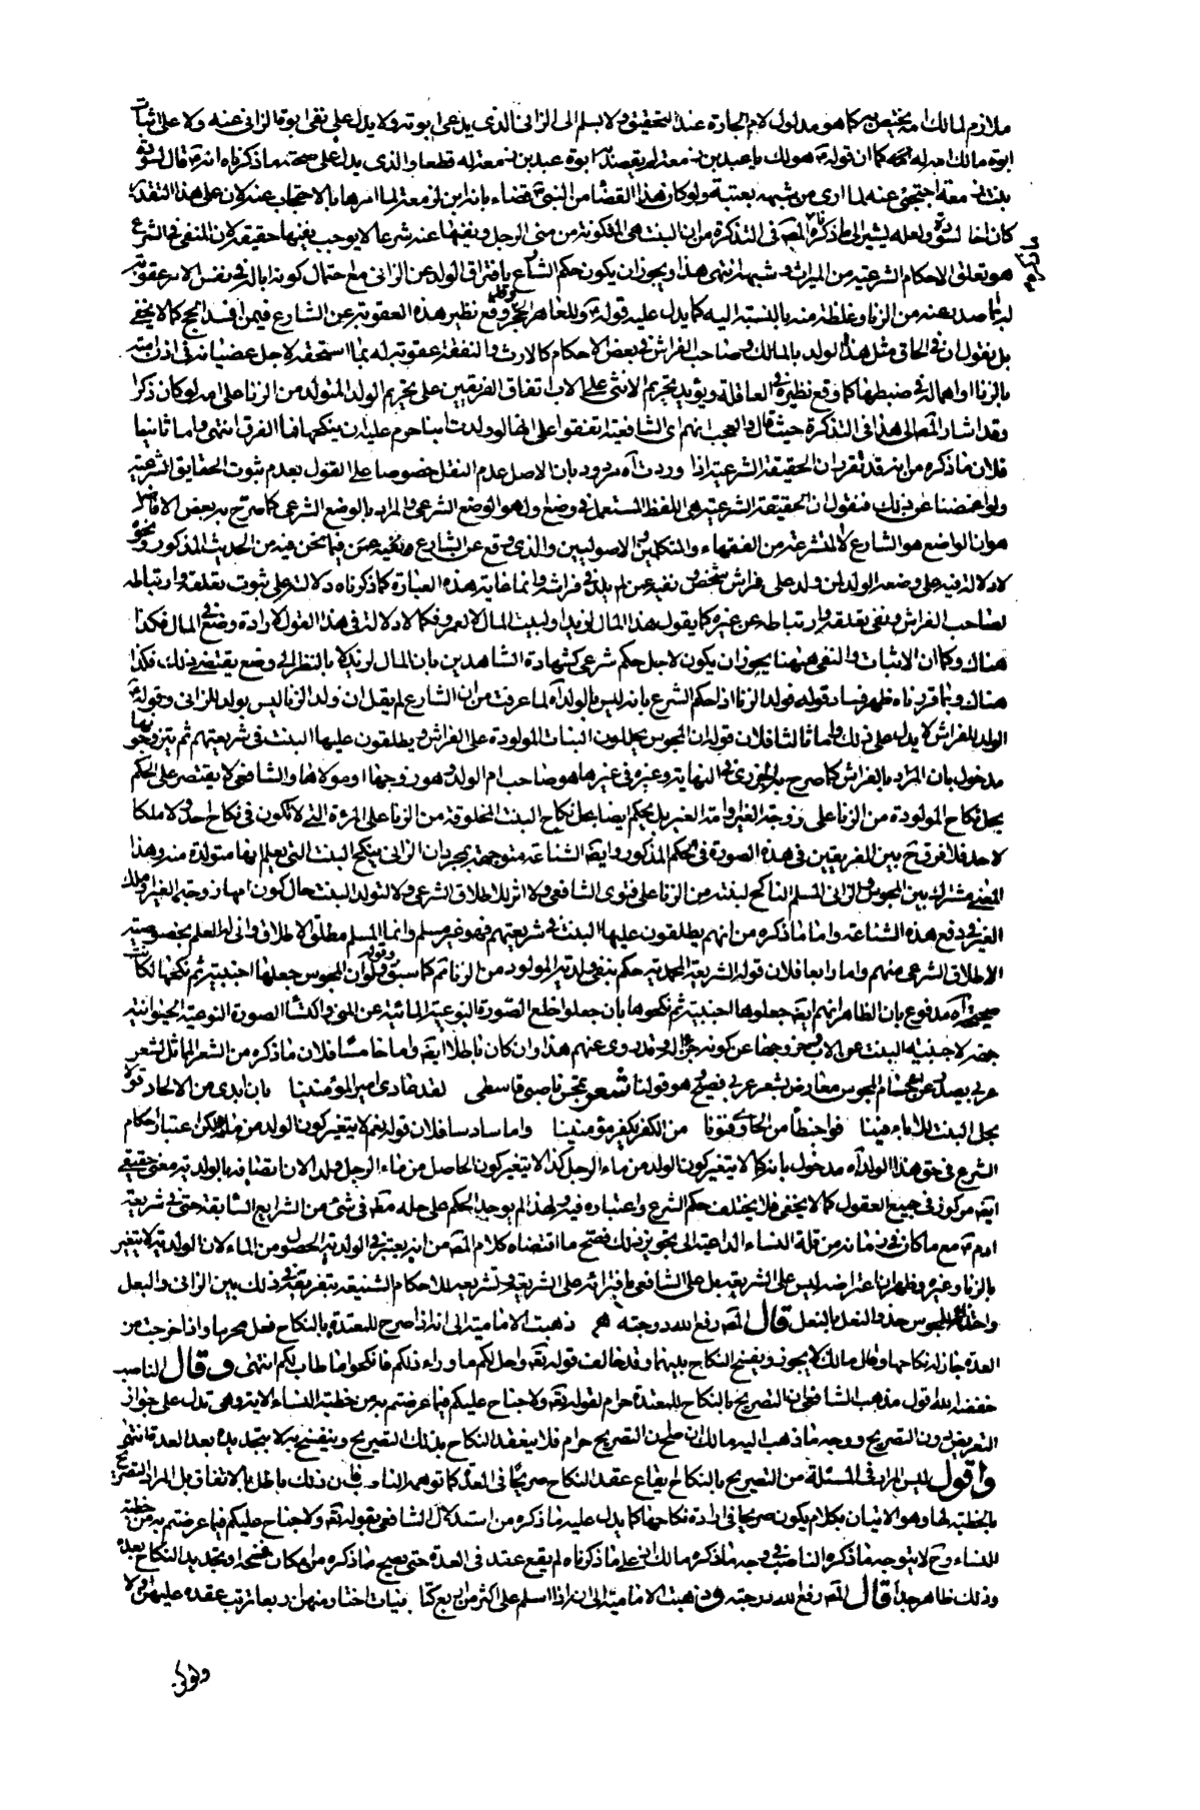 ملازم لمالك انه يختص به كما هو مدلول لام الجارة عند التحقيق ولا يسلم الى الزانى الذى يدعى ابوته ولا يدل على نفى ابوة الزانى عنه ولا على اثبات
ابوة مالك امه له كما ان قوله هو لك يا عبد بن زمعة لم يقصد به ابوة عبد بن زمعة له قطعا والذى يدل على صحة ما ذكرناه انه قال لسودة
بنت زمعة احتجبى عنه لما ارى من شبهه بعتبة ولو كان هذا القضاء من النبى قضاء بانه ابن لزمعة لما امرها بالاحتجاب عنه لان على هذا التقدير
كان اخا لسودة ولعله يشير الى ما ذكره المص فى التذكرة من ان البنت هى المتكونة من منى الرجل ونفيها عنه شرعا لا يوجب نفيها حقيقة لان المنفى فى الشرع
هو تعلق الاحكام الشرعية من الميراث وشبهه انتهى هذا ويجوز ان يكون حكم الشارع بافتراق الولد عن الزانى مع احتمال كونه ابا له فى نفس الامر عقوبة
له بما صدر عنه من الزنا وغلظة منه بالنسبة اليه كما يدل عليه قوله وللعاهر الحجر وقد وقع نظير هذه العقوبة عن الشارع فيمن افسد الحج كما لا يخفى
بل نقول ان فى الحاق مثل هذا الولد بالمالك وصاحب الفراش فى بعض الاحكام كالارث والنفقة عقوبة له بما استحقه لاجل عصيانه فى اذن امته
بالزنا او اهماله فى ضبطها كما وقع نظيره فى العاقلة ويؤيد تحريم الانثى على الاب اتفاق الفريقين على تحريم الولد المتولد من الزنا على امه لو كان ذكرا
وقد اشار المص الى هذا فى التذكرة حيث قال والعجب انهم اى الشافعية اتفقوا على انها لو ولدت ابنا حرم عليه ان ينكحها فما الفرق انتهى واما ثانيا
فلان ما ذكره من انه قد تقرر ان الحقيقة الشرعية اذا وردت آه مردود بان الاصل عدم النقل خصوصا على القول بعدم ثبوت الحقايق الشرعية
ولو اغمضنا عن ذلك فنقول ان الحقيقة الشرعية هى اللفظ المستعمل فى وضع اول هو الوضع الشرعى والمراد بالوضع الشرعى كما صرح به بعض الافاضل
هو ان الواضع هو الشارع لا المتشرعة من الفقهاء والمتكلمين والاصوليين والذى وقع عن الشارع ونفيه عمن فيما نحن فيه من الحديث المذكور ونحوه
لا دلالة فيه على وضعه الولد لمن ولد على فراش شخص ونفيه عن لم يلد فى فراشه وانما غاية هذه العبارة كما ذكرناه دلالته على ثبوت تعلقه وارتباطه
لصاحب الفراش ونفى تعلقه وارتباطه عن غيره كما يقول هذا المال لزيد او لبيت المال لا لعمرو فكما لا دلالة فى هذا القول لارادة وضع فى المال فكذا
هناك وكما ان الاثبات والنفى ههنا يجوز ان يكون لاجل حكم شرعى كشهادة الشاهدين بان المال لزيد لا بالنظر الى وضع يقتضى ذلك فكذا
هناك وبما قررناه ظهر فساد قوله فولد الزنا اذا حكم الشرع بانه ليس بالولد آه لما عرفت من ان الشارع لم يقل ان ولد الزنا ليس بولد للزانى وقوله
الولد للفراش لا يدل على ذلك واما ثالثا فلان قوله ان المجوس يحللون البنات المولودة على الفراش ويطلقون عليها البنت فى شريعتهم ثم يتزوجو بها
مدخول بان المراد بالفراش كما صرح به الجزرى فى النهاية وغيره فى غيرها هو صاحب ام الولد وهو زوجها او مولاها والشافعى لا يقتصر على الحكم
بحل نكاح المولودة من الزنا على زوجة الغير وامة الغير بل يحكم ايضا بحل نكاح البنت المخلوقة من الزنا على المرءة التى لا تكون فى نكاح احد ولا ملكا
لاحد فلا فرق ح بين الفريقين فى هذه الصورة فى الحكم المذكور وايضا الشناعة متوجهة بمجرد ان الزانى ينكح البنت التى يعلم انها متولدة منه وهذا
المعنى مشترك بين المجوس والزانى المسلم الناكح لبنته من الزنا على فتوى الشافعى ولا اثر للاطلاق الشرعى ولا لتولد البنت حال كون امها زوجة الغير او ملك
الغير فى دفع هذه الشناعة واما ما ذكره من انهم يطلقون عليها البنت فى شريعتهم فهو غير مسلم وانما المسلم مطلق الاطلاق وانى له العلم بخصوصية
الاطلاق الشرعى منهم واما رابعا فلان قوله الشريعة المحمدية حكم بنفى ولدية المولود من الزنا ثم كما سبق وقوله ولو ان المجوس جعلها اجنبية ثم نكحها لكانت
صحيحة آه مدفوع بان الظاهر انهم ايضا جعلوها اجنبية ثم نكحوها بان جعلوا خلع الصورة النوعية المائية عن المنى واكتساء الصورة النوعية الحيوانية
جهة لاجنبية البنت عن الاب وخروجها عن كونه جزءا له وقد روى عنهم هذا وان كان باطلا ايضا واما خامسا فلان ما ذكره من الشعر المماثل لشعر
عربى يصدر عن اعجام المجوس معارض بشعر عربى فصيح هو قولنا شعر تمجس ناصبى فاسطى لقد عادى امير المؤمنينا بان ابدى من الالحاد قولا
بحل البنت للاباء فينا فواخبطا من الحاوى فنونا من الكفر بكفر مؤمنينا واما سادسا فلان قوله نعم لا يتغير كون الولد من مائه لكن اعتبار احكام
الشرع فى حق هذا الولد آه مدخول بانه كما لا يتغير كون الولد من ماء الرجل كذا لا يتغير كون الحاصل من ماء الرجل ولدا لان اتصافه بالولدية معنى حقيقى
ايضا مركوز فى جميع العقول كما لا يخفى فلا يختلف حكم الشرع واعتباره فيه ولهذا لم يوجد الحكم على حله مطلقا فى شئ من الشرايع السابقة حتى فى شريعة
ادم مع ما كان فى زمانه من قلة النساء الداعية الى تجويز ذلك فصح ما اقتضاه كلام المص من انه يعتبر فى الولدية الحصول من الماء لان الولدية لا تتغير
بالزنا وغيره وظهر ان اعتراضه ليس على الشريعة بل على الشافعى بافترائه على الشريعة وتشريعه للاحكام الشنيعة بتفريقه فى ذلك بين الزانى والبعل
واخذ اثر المجوس حذو النعل بالنعل قال المص رفع الله درجته ذهبت الامامية الى انه اذا صرح للمعتدة بالنكاح فعل محرما واذا خرجت من
العدة جاز له نكاحها وقال مالك لا يجوز ويفسخ النكاح بينهما وقد خالف قوله تعالى واحل لكم ما وراء ذلكم فانكحوا ما طاب لكم انتهى وقال الناصب
خفضه الله اقول مذهب الشافعى ان التصريح بالنكاح للمعتدة حرام لقوله تعالى ولا جناح عليكم فيما عرضتم به من خطبة النساء الاية وهى تدل على جواز
التعريض دون التصريح ووجه ما ذهب اليه مالك ان صح ان التصريح حرام فلا ينعقد النكاح بذلك التصريح وينفسخ به لا بتجديده بعد العدة انتهى
واقول ليس المراد فى المسئلة من التصريح بالنكاح ايقاع عقد النكاح صريحا فى العدة كما توهمه الناصب فان ذلك باطل بالاتفاق بل المراد التصريح
بالخطبة لها وهو الاتيان بكلام يكون صريحا فى ارادة نكاحها كما يدل عليه ما ذكره من استدلال الشافعى بقوله تعالى ولا جناح عليكم فيما عرضتم به من خطبة
النساء وح لا يتوجه ما ذكره الناصب فى وجه ما ذكره مالك اذ على ما ذكرناه لم يقع عقد فى العدة حتى يصح ما ذكره من امكان فسخه او تجديد النكاح بعده
وذلك ظاهر جدا قال المص رفع الله درجته وذهبت الامامية الى انه اذا اسلم على اكثر من اربع كتابيات اختار منهن اربعا ترتب عقده عليهن او لا
ولو كن